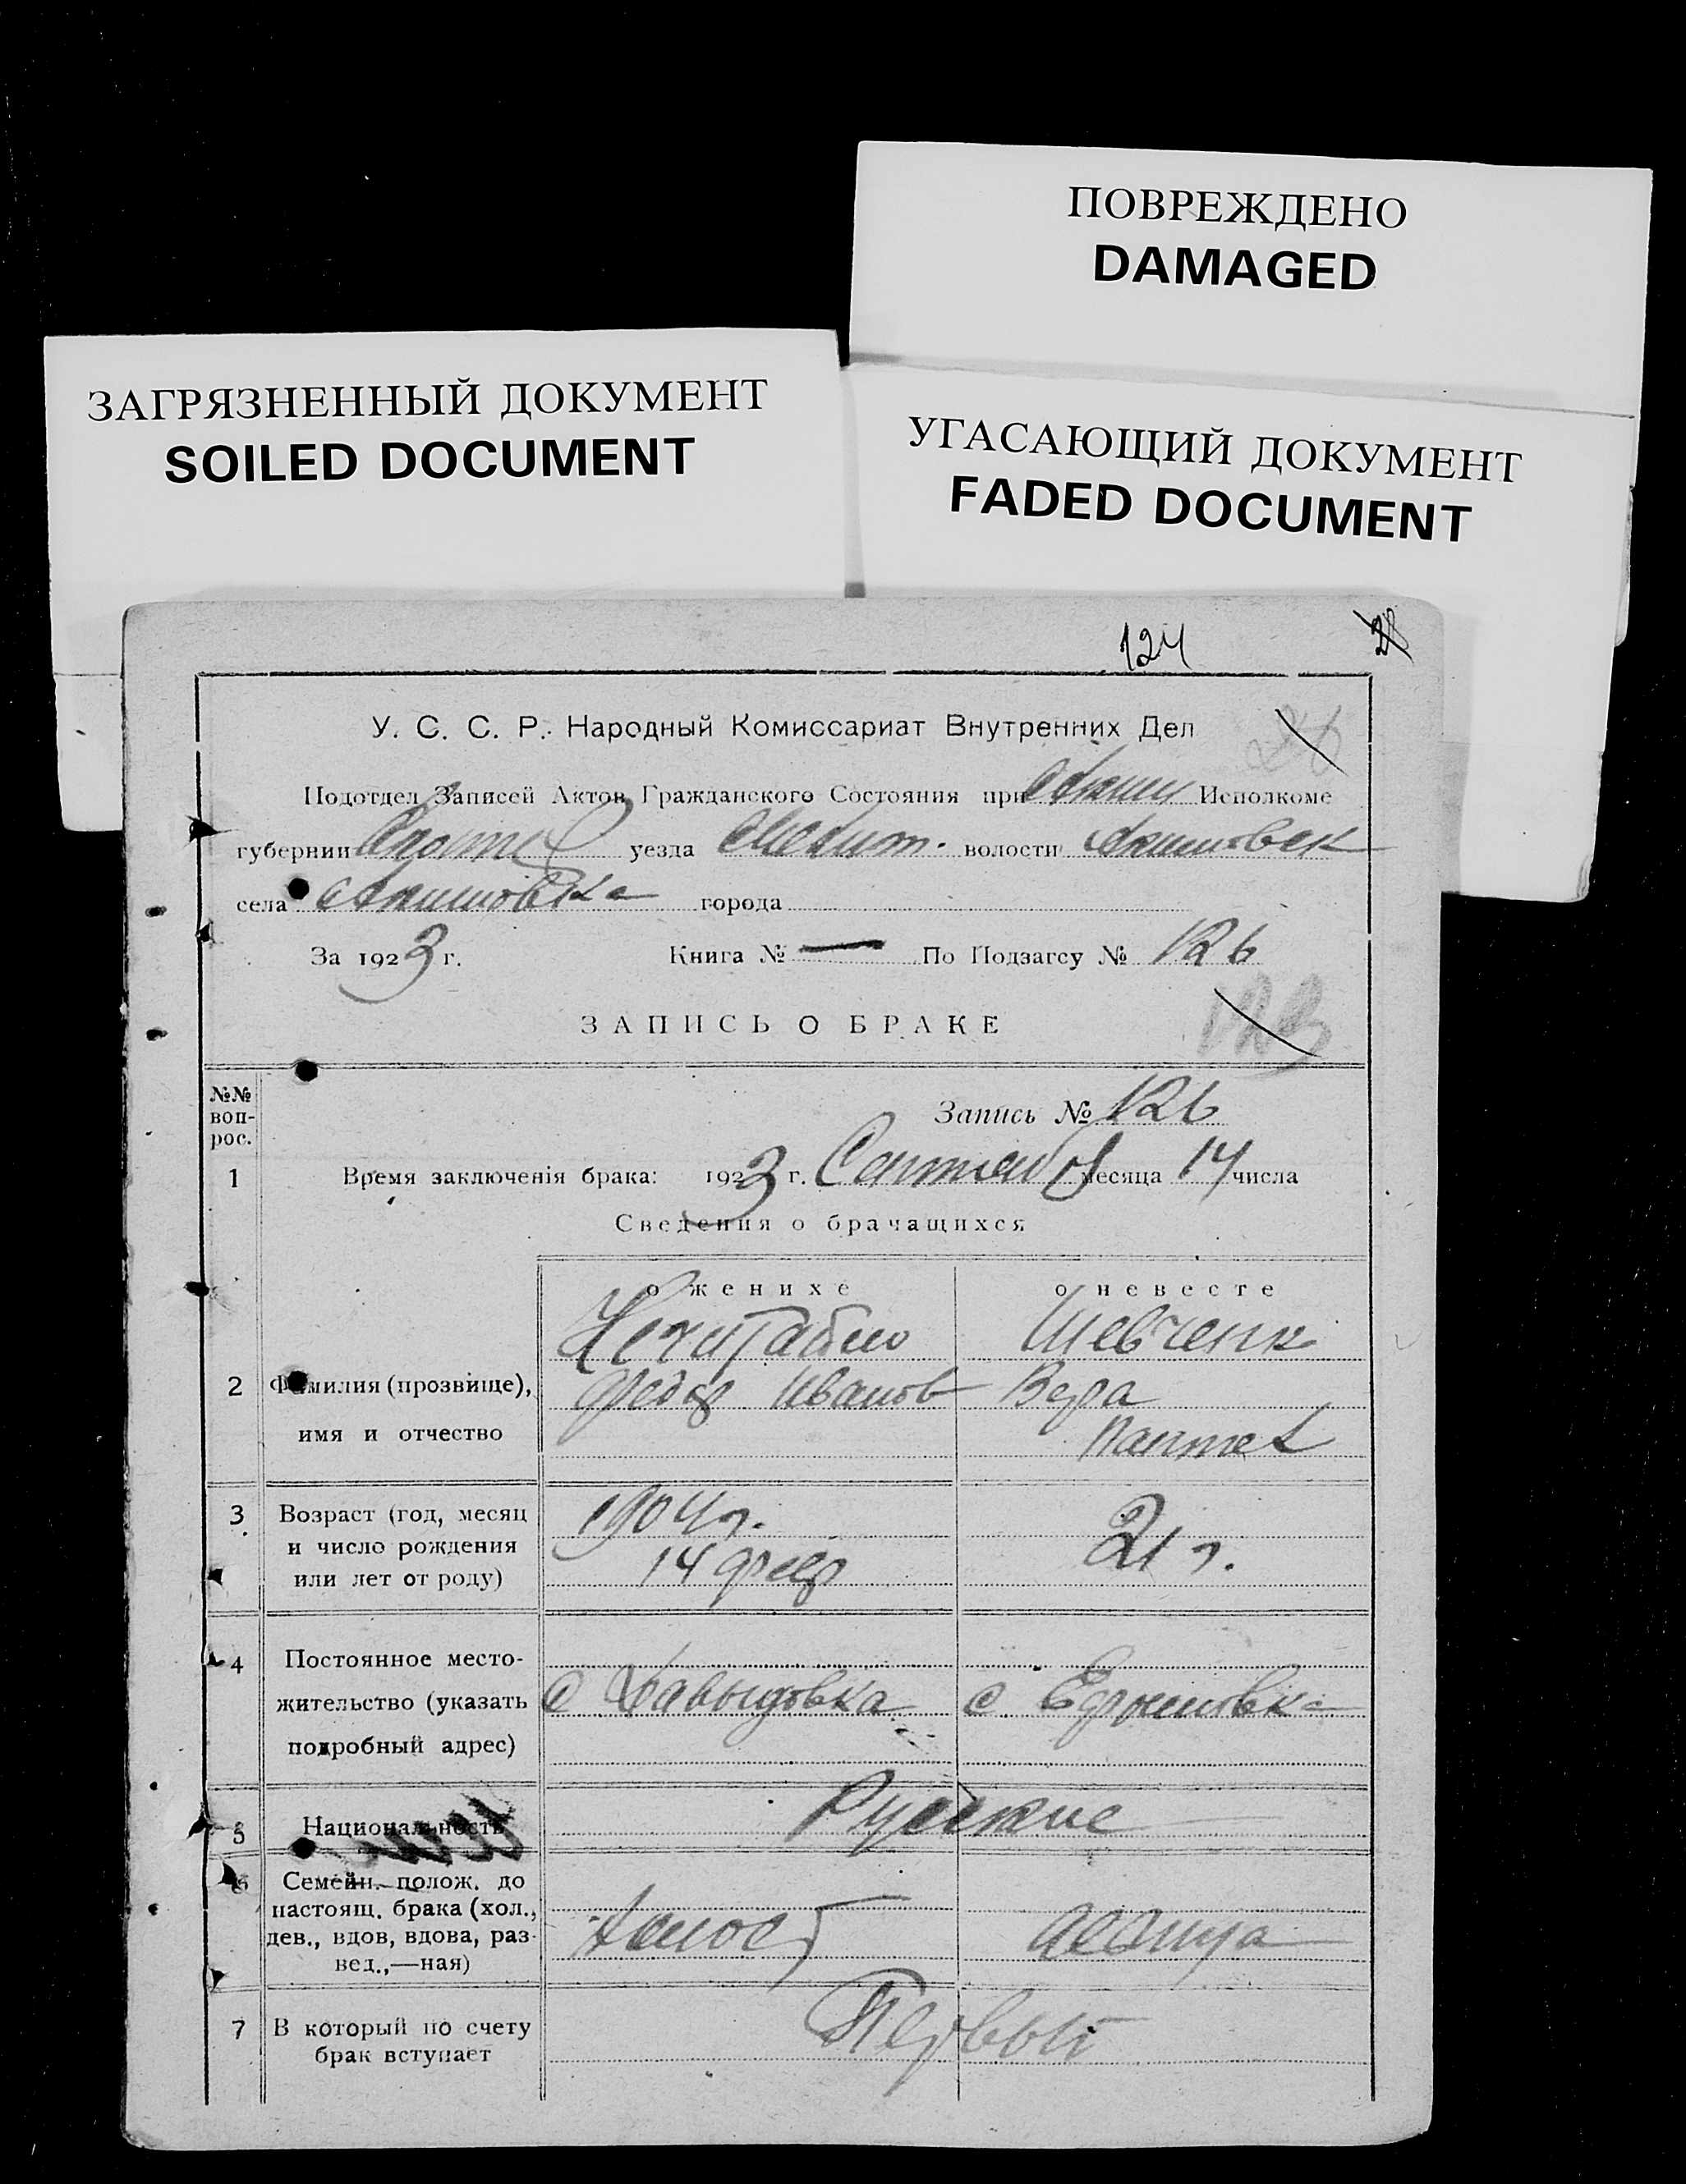 ПОВРЕЖДЕНО
DAMAGED
ЗАГРЯЗНЕННЫЙ ДОКУМЕНТ
SOILED DOCUMENT
УГАСАЮЩИЙ ДОКУМЕНТ
FADED DOCUMENT
124
У. С. С. Р. Народный Комиссариат Внутренних Дел
Подотдел Записей Актов Гражданского Состояния при Аким Исполкоме
губернии уезда Мелит. волости Акимовск
села Акимовка города
За 1923 г. Книга № — По Подзагсу № 126
ЗАПИСЬ О БРАКЕ
№№ вопрос.
Запись № 126
1 Время заключенія брака: 1923 г. Сентяб месяца 14 числа
Сведения о брачащихся
о женихе о невесте
Шевченк
2 Фамилия (прозвище), Федор Иванов Вера
имя и отчество Пантел
3 Возраст (год, месяц 1904 г. 21 г.
и число рождения 14 февр
или лет от роду)
4 Постоянное место-
жительство (указать с Давыдовка с.
подробный адрес)
5 Национальность Русские
6 Семейн. полож. до
настоящ. брака (хол., Холост девица
дев., вдов, вдова, раз-
вед.,—ная)
7 В который по счету Первый
брак вступает